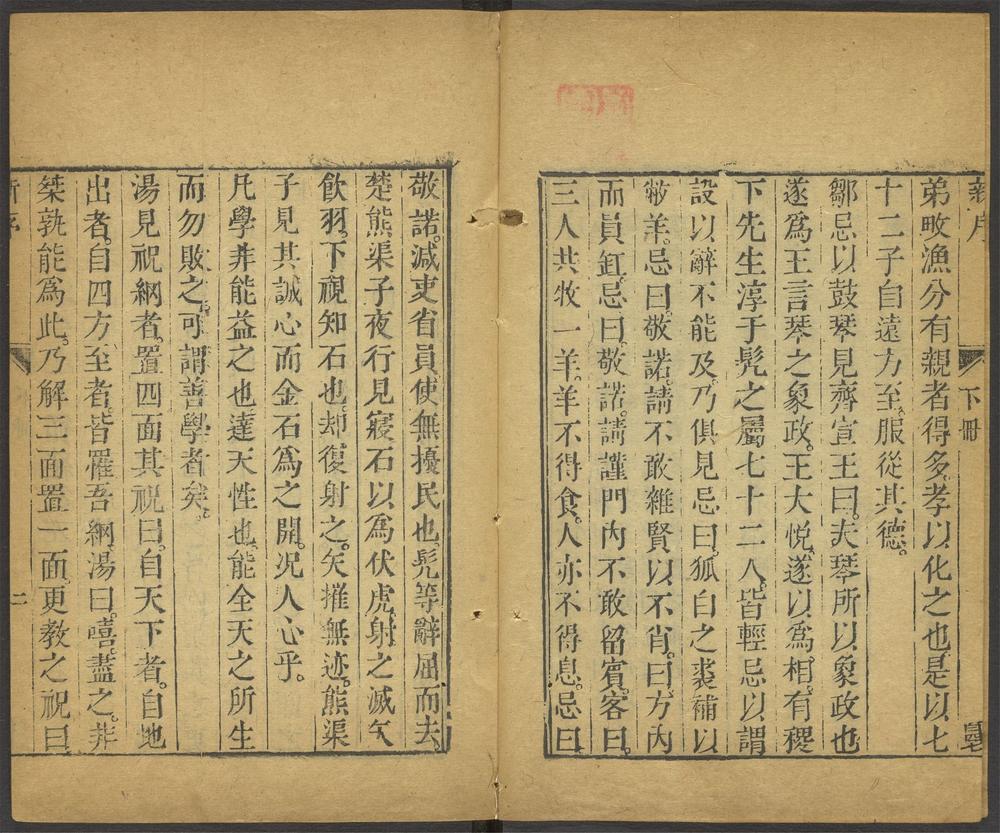 新序 下冊
弟畋漁分有親者得多孝以化之也是以七
十二子自遠方至服從其德。
鄒忌以鼓琴見齊宣王曰夫琴所以象政也
遂爲王言琴之象政王大悅遂以爲相有稷
下先生淳于髠之屬七十二人皆輕忌以謂
設以辭不能及乃俱見忌曰狐白之裘補以
敝羊忌曰敬諾請不敢雜賢以不肖曰方內
而員釭忌曰敬諾請謹門內不敢留賓客曰
三人共牧一羊羊不得食人亦不得息忌曰
敬諾減吏省員使無擾民也髠等辭屈而去。
楚熊渠子夜行見寢石以爲伏虎射之滅矢
飲羽下視知石也却復射之矢摧無迹熊渠
子見其誠心而金石爲之開況人心乎。
凡學非能益之也達天性也能全天之所生
而勿敗之可謂善學者矣。
湯見祝網者置四面其祝曰自天下者自地
出者自四方至者皆罹吾網湯曰嘻盡之非
桀孰能爲此乃解三面置一面更教之祝曰
新序 二